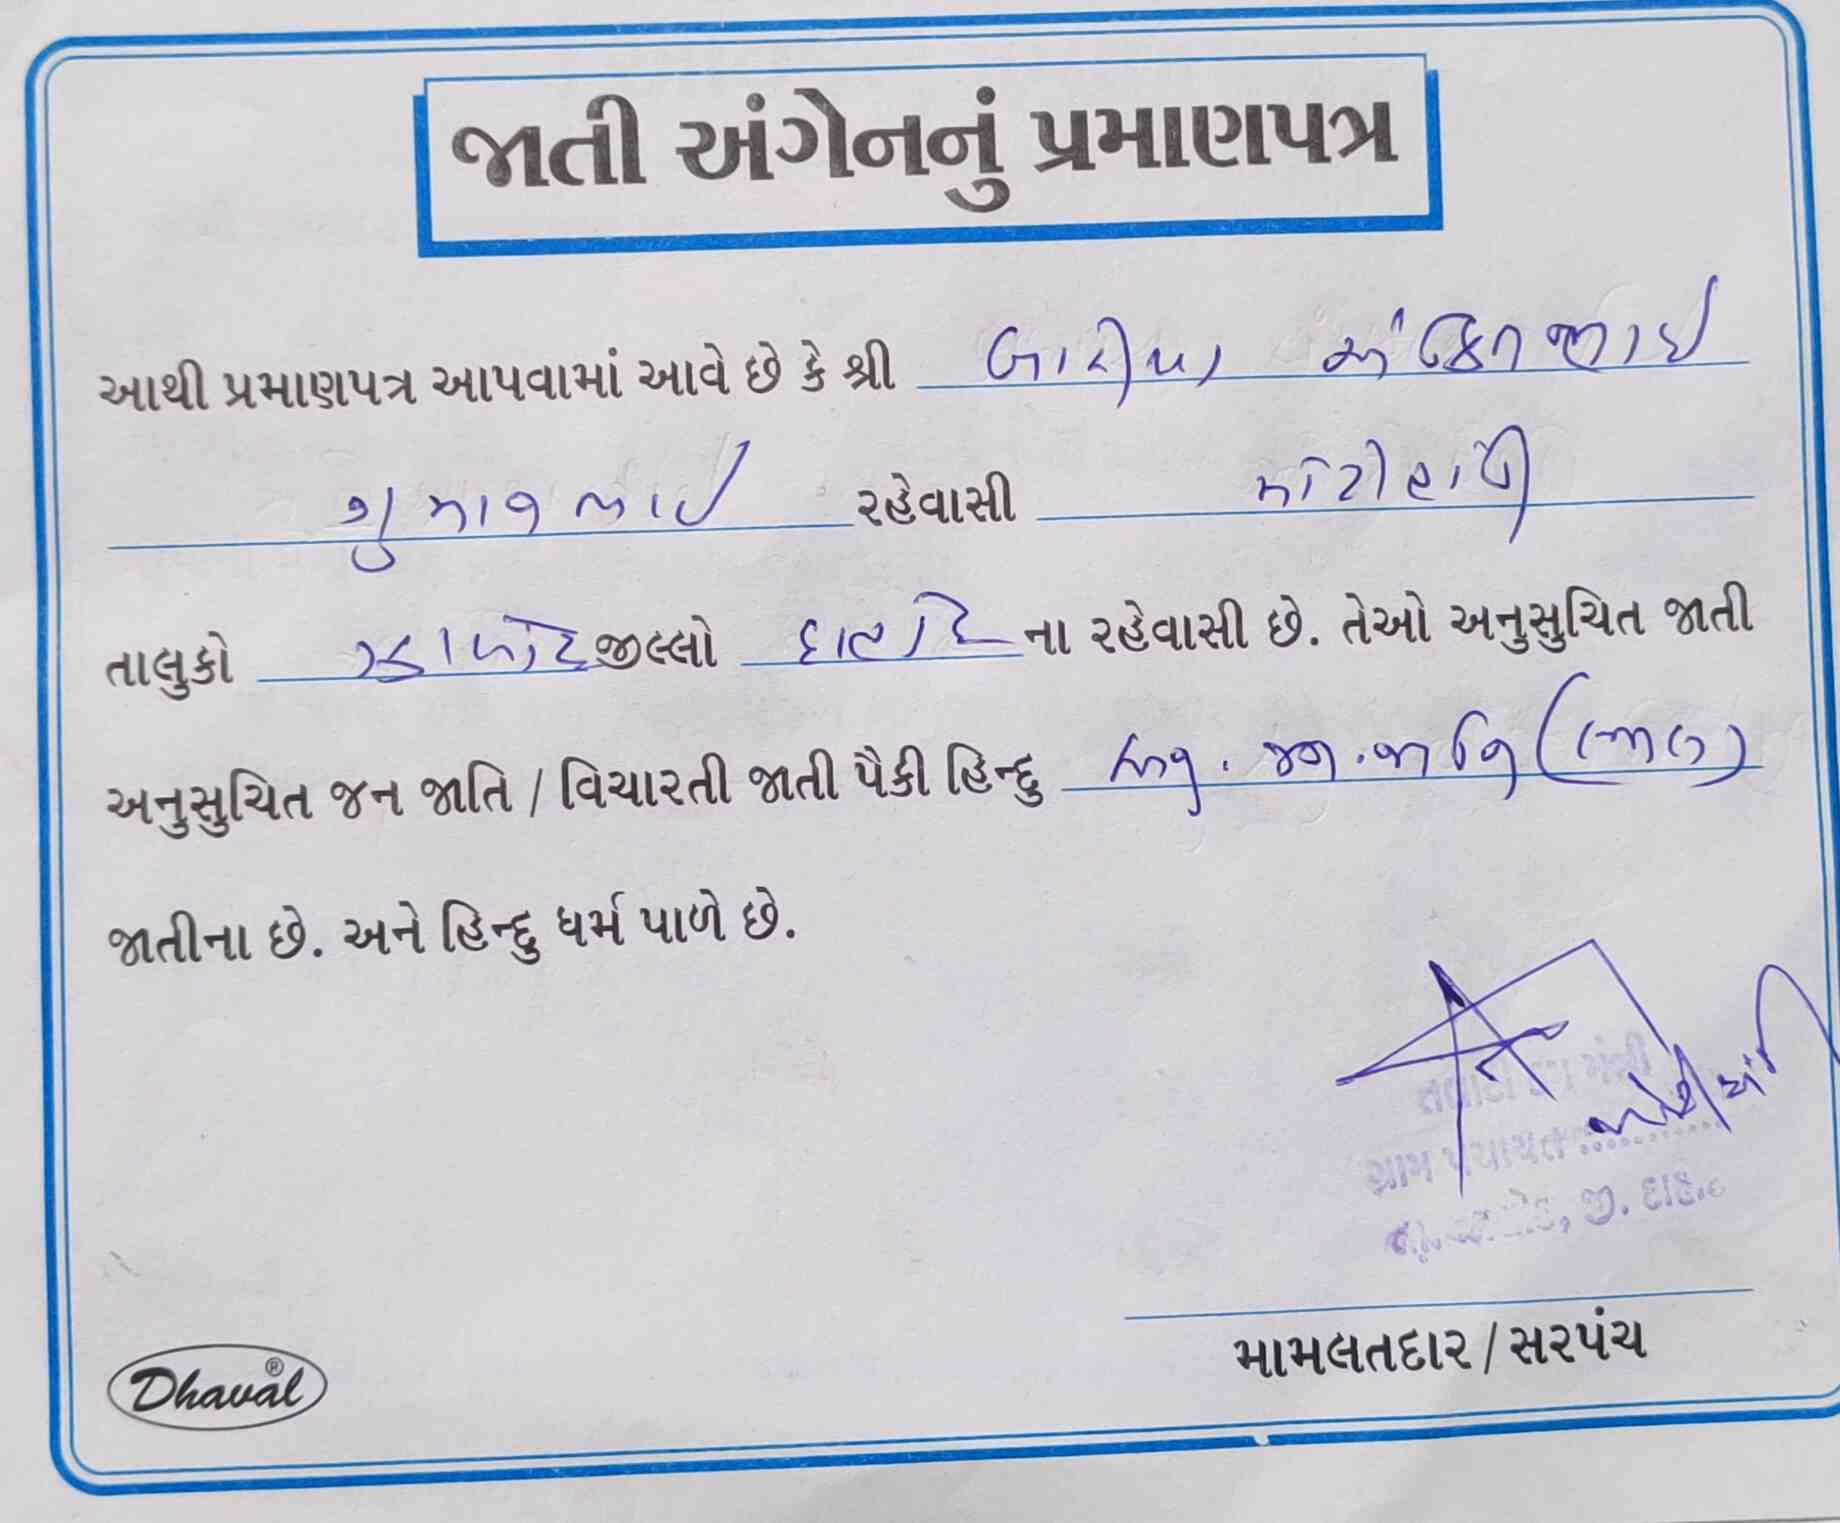 જાતી અંગેનનું પ્રમાણપત્ર
આથી પ્રમાણપત્ર આપવામાં આવે છે કે શ્રી બારીયા અંકિતભાઇ
ગુમાનભાઇ રહેવાસી મોટીહાંડી
તાલુકો ઝાલોદ જીલ્લો દાહોદ ના રહેવાસી છે. તેઓ અનુસુચિત જાતી
અનુસુચિત જન જાતિ / વિચારતી જાતી પૈકી હિન્દુ અનુ. જન. જાતિ (ભીલ)
જાતીના છે. અને હિન્દુ ધર્મ પાળે છે.
ગ્રામ પંચાયત
જી. દાહોદ
મામલતદાર / સરપંચ
Dhaval®